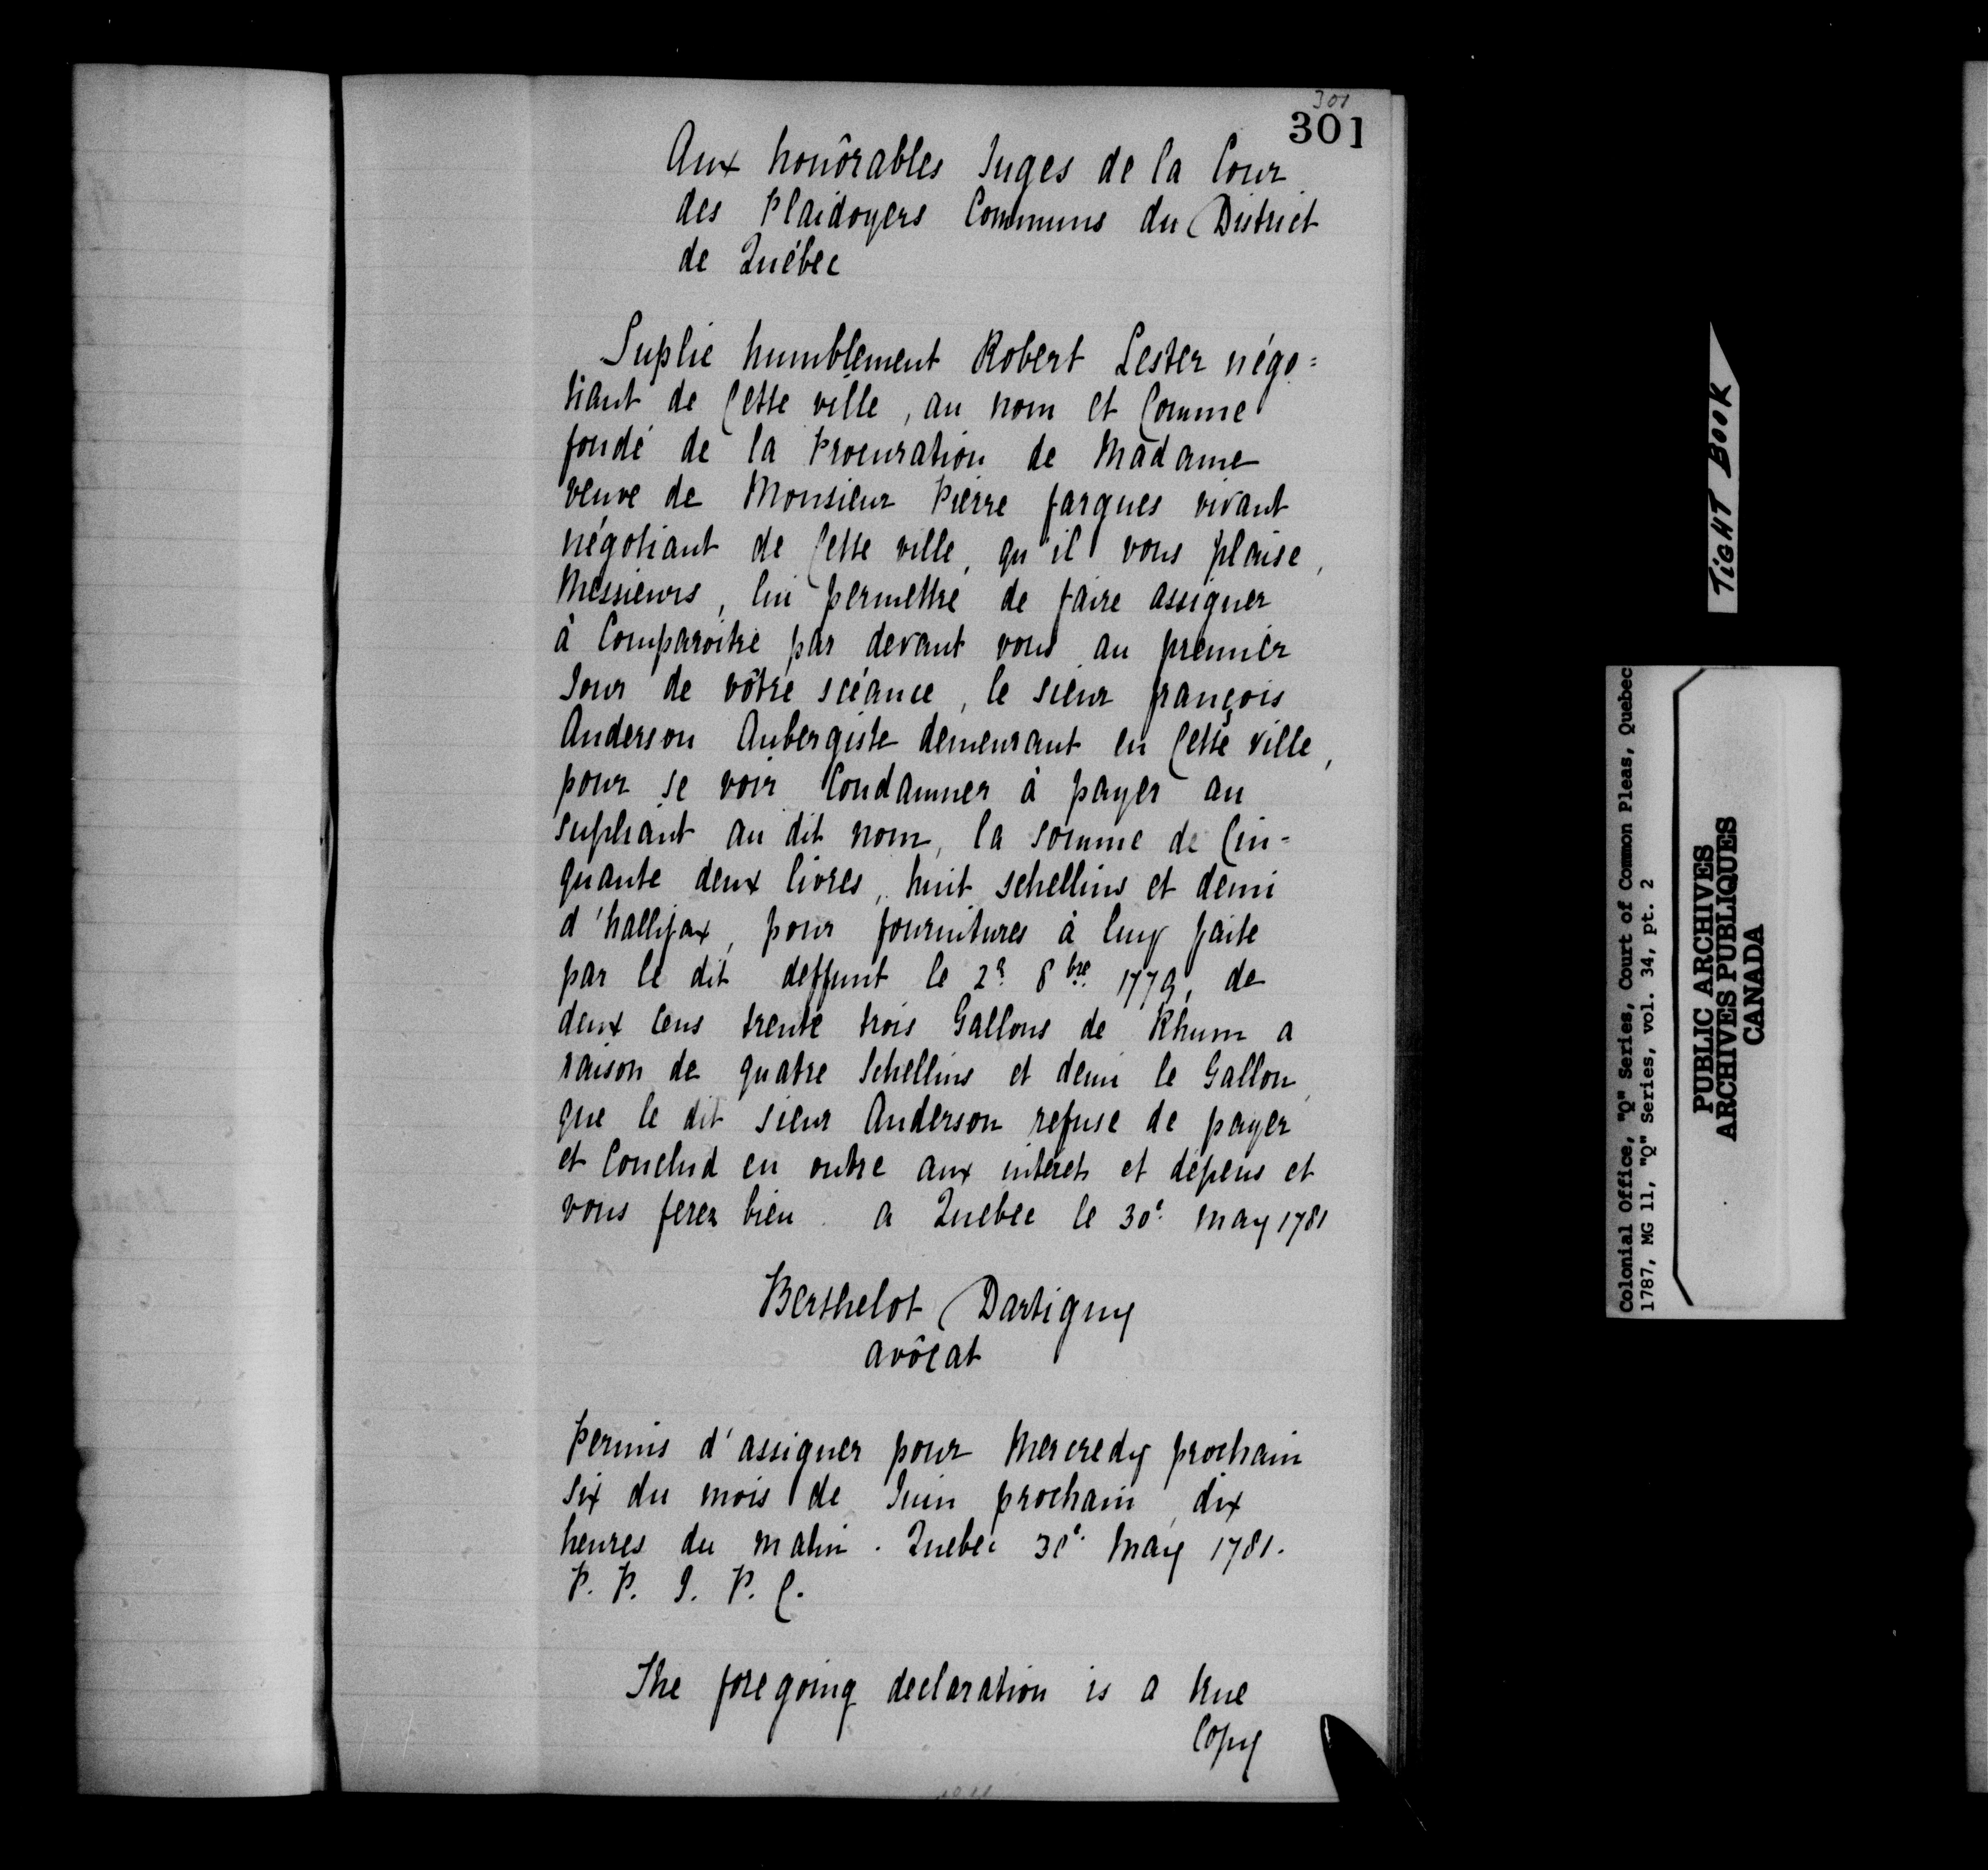 301
301
Aux honôrables Juges de la Cour
des Plaidoyers Communs du District
de Québec
Suplie humblement Robert Lester négo=
tiant de Cette ville, au nom et Comme
fondé de la Procuration de Madame
veuve de Monsieur Pierre fargues vivant
négotiant de Cette ville, qu'il vous plaise,
Messieurs, lui permettre de faire assigner
à Comparoitre par devant vous au premier
Jour de vôtre scéance, le sieur françois
Anderson Aubergiste demeurant en Cette ville,
pour se voir Condamner à payer au
supliant au dit nom, la somme de Cin-
quante deux livres, huit schellins et demi
d'hallifax, pour fournitures à luy faite
par le dit deffunt le 2e 8bre 1779, de
deux cens trente trois Gallons de Rhum a
raison de quatre Schellins et demi le Gallon,
que le dit sieur Anderson refuse de payer
et Conclud en outre aux intérets et dépens et
vous ferez bien. a Quebec le 30e May 1781
Berthelot Dartigny
avôcat
Permis d'assigner pour Mercredy prochain
six du mois de Juin prochain, dix
heures du matin. Quebec 30e May 1781.
P. P. J. P. C.
The foregoing declaration is a true
Copy
TIGHT BOOK
Colonial Office, "Q" Series, Court of Common Pleas, Quebec
1787, MG 11, "Q" Series, vol. 34, pt. 2
PUBLIC ARCHIVES
ARCHIVES PUBLIQUES
CANADA